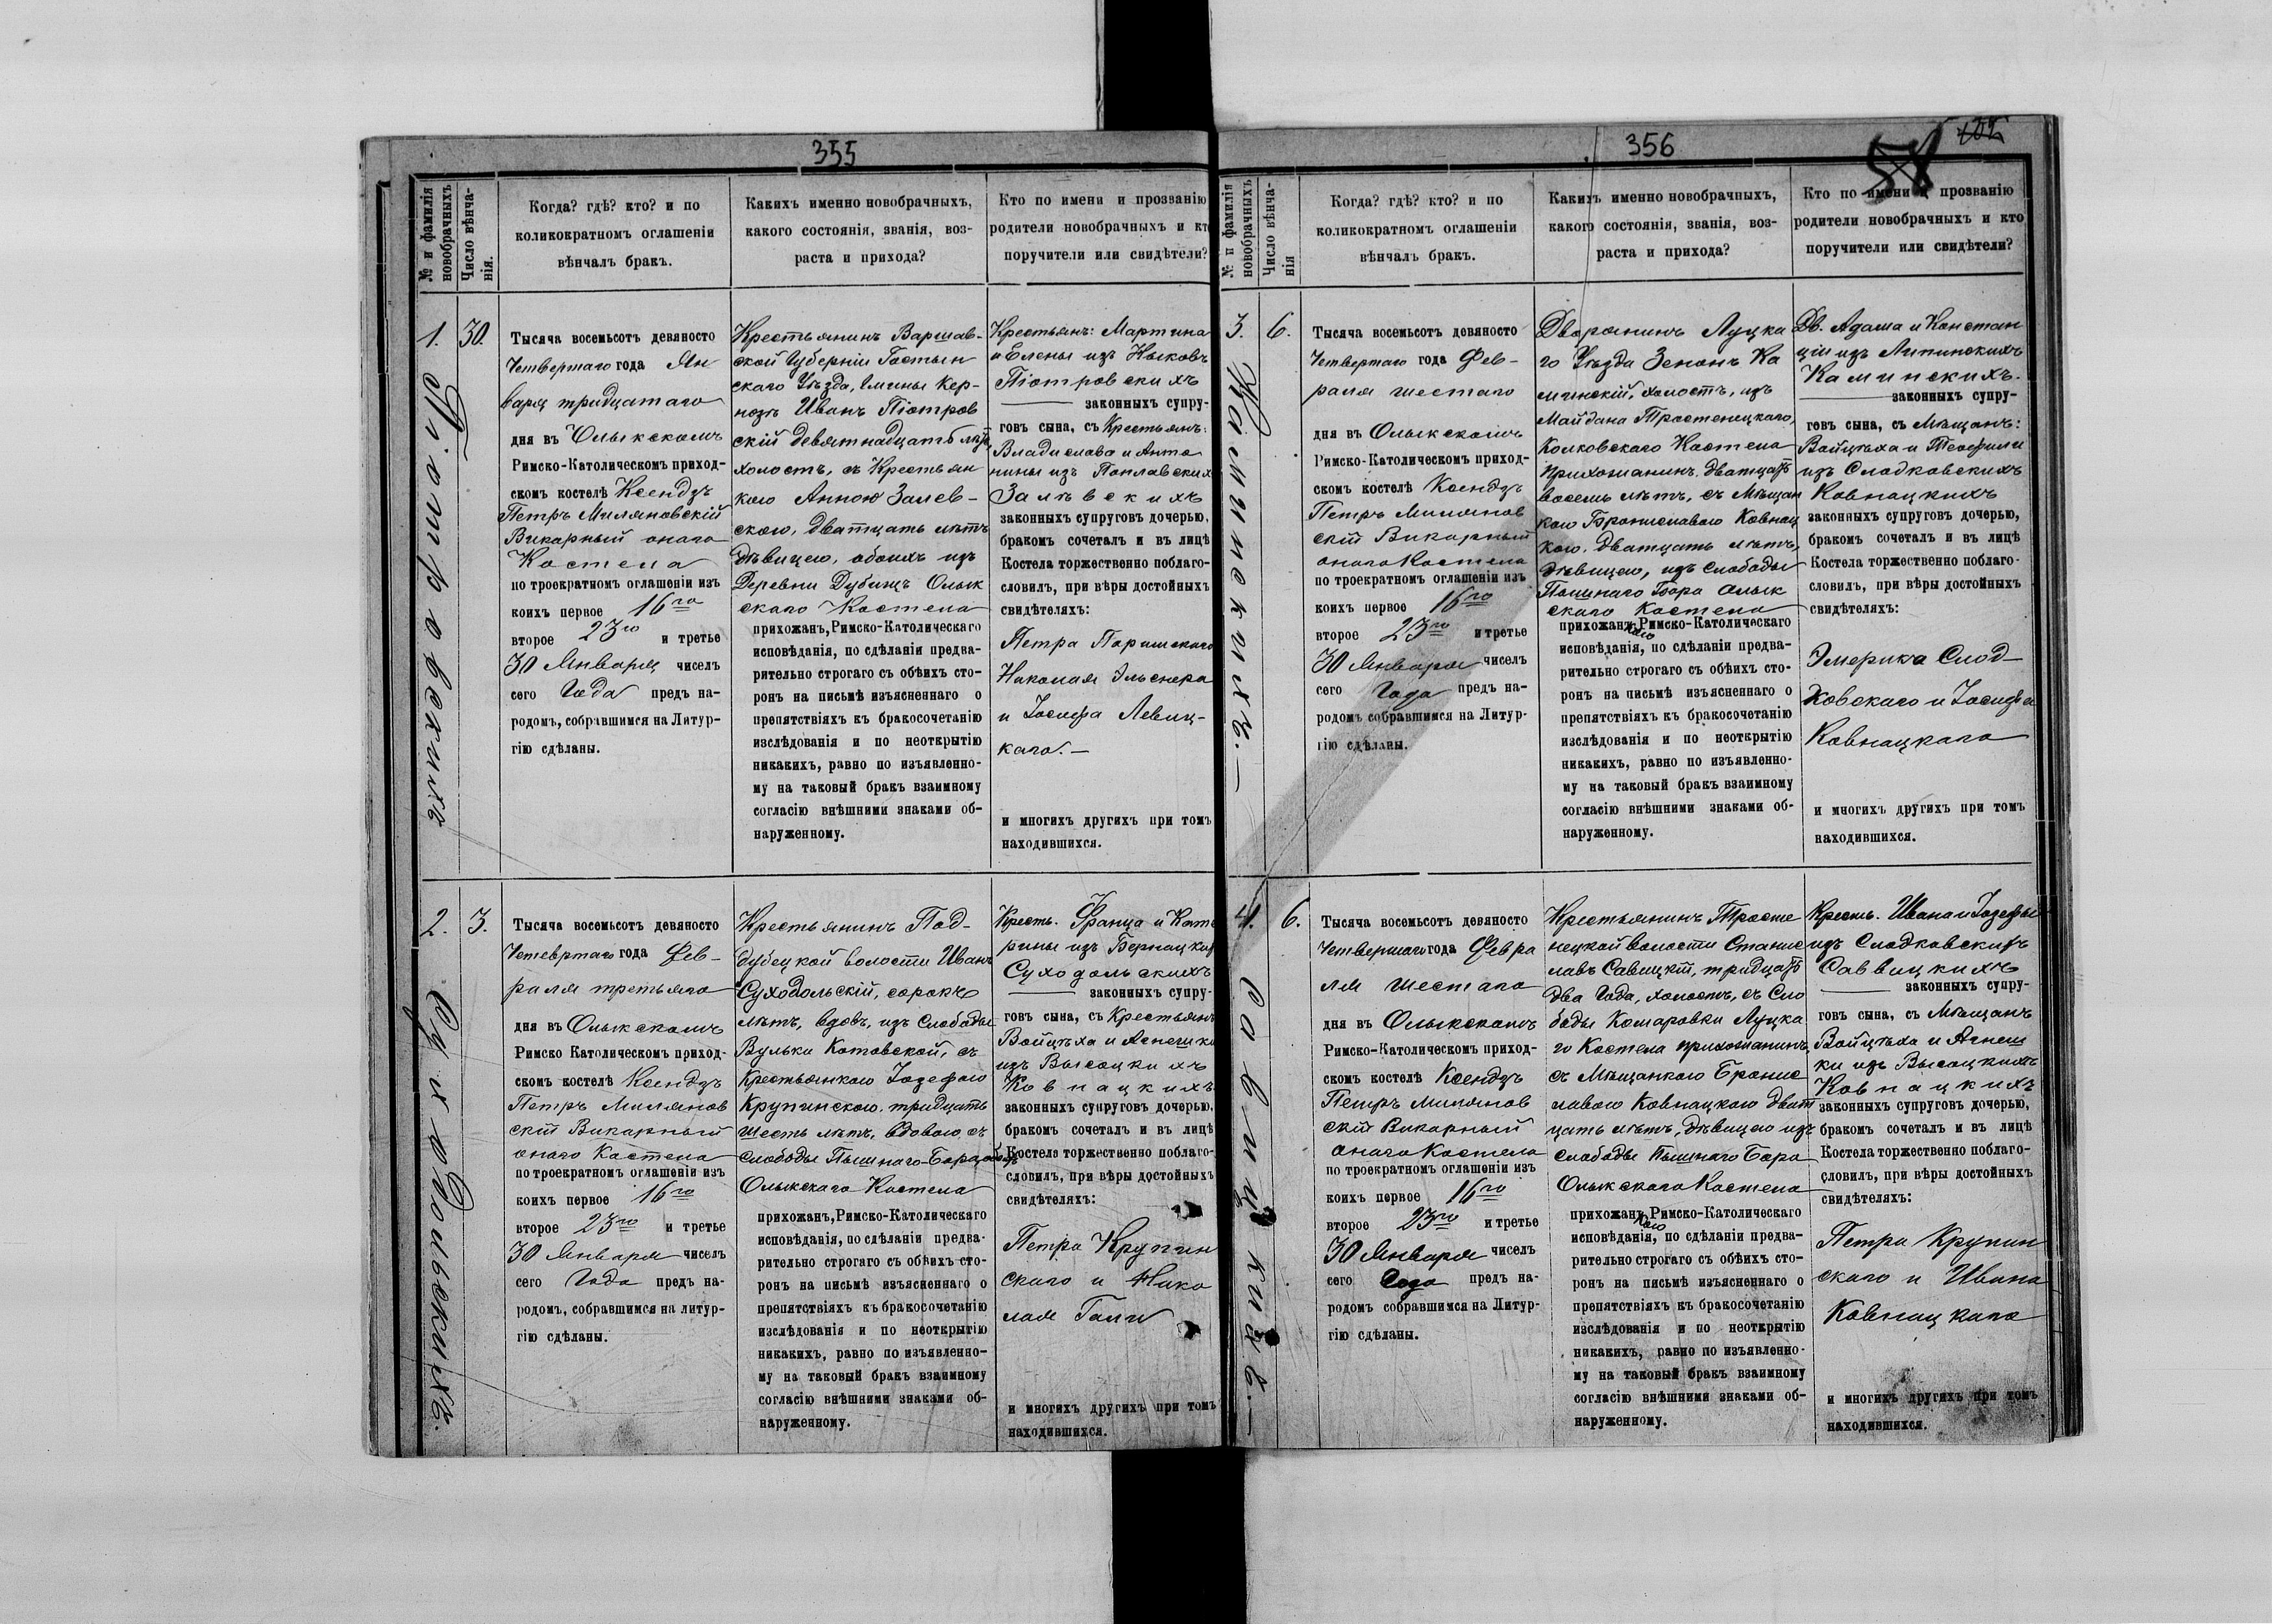 355
№ и фамилія новобрачныхъ
Число вѣнчанія.
Когда? гдѣ? кто? и по
коликократномъ оглашеніи
вѣнчалъ бракъ.
Какихъ именно новобрачныхъ,
какого состоянія, званія, воз-
раста и прихода?
Кто по имени и прозванію
родители новобрачныхъ и кто
поручители или свидѣтели?
1.
Піотровскихъ
30.
Тысяча восемьсотъ девяносто
Четвертаго года Ян
варя тридцатаго
дня въ Олыкскомъ
Римско-Католическомъ приход-
скомъ костелѣ Ксендзъ
Петръ Миляновскій
Викарный онаго
Костела
по троекратномъ оглашеніи изъ
коихъ первое 16го
второе 23го и третье
30 Января чиселъ
сего Года предъ на-
родомъ, собравшимся на Литур-
гію сдѣланы.
Крестьянинъ Варшав-
ской Губерніи Гостын
скаго Уѣзда, Гмины Кер-
нозъ Иванъ Піотров
скій девятнадцать лѣтъ,
холостъ, съ Крестьян
кою Анною Залев-
скою, дватцать лѣтъ
дѣвицею, обоихъ изъ
Деревни Дубищъ Олык
скаго Костела
прихожанъ, Римско-Католическаго
исповѣданія, по сдѣланіи предва-
рительно строгаго съ обѣихъ сто-
ронъ на письмѣ изъясненнаго о
препятствіяхъ къ бракосочетанію
изслѣдованія и по неоткрытію
никакихъ, равно по изъявленно-
му на таковый бракъ взаимному
согласію внѣшними знаками об-
наруженному.
Крестьянъ: Мартина
и Елены изъ Кыковъ
Піотровскихъ
законныхъ супру-
говъ сына, съ Крестьянъ:
Владислава и Анто
нины изъ Поплавских
Залѣвскихъ
законныхъ супруговъ дочерью,
бракомъ сочеталъ и въ лицѣ
Костела торжественно поблаго-
словилъ, при вѣры достойныхъ
свидѣтеляхъ:
Петра Паришскаго
Николая Эльснера
и Іосифа Левиц-
каго.—
и многихъ другихъ при томъ
находившихся.
2.
Суходольскихъ.
3.
Тысяча восемьсотъ девяносто
Четевртаго года Фев-
раля третьяго
дня въ Олыкскомъ
Римско Католическомъ приход-
скомъ костелѣ Ксендзъ
Петръ Милянов
скій Викарный
онаго Костела
по троекратномъ оглашеніи изъ
коихъ первое 16го
второе 23го и третье
30 Января чиселъ
сего Года предъ на-
родомъ, собравшимся на литур-
гію сдѣланы.
Крестьянинъ Под-
дубецкой волости Иванъ
Суходольскій, сорокъ
лѣтъ, вдовъ, изъ Слободы
Вульки Котовской, съ
Крестьянкою Іозефою
Крупинскою, тридцать
шесть лѣтъ, вдовою, съ
слободы Пышнаго-Бора, обоихъ
Олыкскаго Костела
прихожанъ, Римско-Католическаго
исповѣданія, по сдѣланіи предва-
рительно строгаго съ обѣихъ сто-
ронъ на письмѣ изъясненнаго о
препятствіяхъ къ бракосочетанію
изслѣдованія и по неоткрытію
никакихъ, равно по изъявленно-
му на таковый бракъ взаимному
согласію внѣшними знаками об-
наруженному.
Кресть. Франца и Кате
рины изъ Бернацких
Суходольскихъ
законныхъ супру-
говъ сына, съ Крестьянъ
Войцѣха и Агнешки
изъ Высоцкихъ
Ковнацкихъ
законныхъ супруговъ дочерью,
бракомъ сочеталъ и въ лицѣ
Костела торжественно поблаго-
словилъ, при вѣры достойныхъ
свидѣтеляхъ:
Петра Крупин
скаго и Нико
лая Гали
и многихъ другихъ при томъ
находившихся.
356
58
№ и фамилія новобрачныхъ
Число вѣнчанія
Когда? гдѣ? кто? и по
коликократномъ оглашеніи
вѣнчалъ бракъ.
Какихъ именно новобрачныхъ,
какого состоянія, званія, воз-
раста и прихода?
Кто по имени и прозванію
родители новобрачныхъ и кто
поручители или свидѣтели?
3.
Каминскихъ.—
6.
Тысяча восемьсотъ девяносто
Четвертаго года Фев-
раля шестаго
дня въ Олыкскомъ
Римско-Католическомъ приход-
скомъ костелѣ Ксендзъ
Петръ Милянов
скій Викарный
онаго Костела
по троекратномъ оглашеніи изъ
коихъ первое 16го
второе 23го и третье
30 Января чиселъ
сего Года предъ на-
родомъ собравшимся на Литур-
гію сдѣланы.
Дворянинъ Луцка
го Уѣзда Зенонъ Ка
минскій, холостъ, изъ
Майдана Тростенецкаго,
Колковскаго Костела
прихожанинъ, дватцать
восемь лѣтъ, съ Мѣщан
кою Брониславою Ковнац
кою, дватцать лѣтъ,
дѣвицею, изъ слободы
Пышнаго Бора Олык
скаго Костела
прихожанкою Римско-Католическаго
исповѣданія, по сдѣланіи предва-
рительно строгаго съ обѣихъ сто-
ронъ на письмѣ изъясненнаго о
препятствіяхъ къ бракосочетанію
изслѣдованія и по неоткрытію
никакихъ, равно по изъявленно-
му на таковый бракъ взаимному
согласію внѣшними знаками об-
наруженному.
Дв. Адама и Констан
ціи изъ Липинскихъ
Каминскихъ.
законныхъ супру-
говъ сына, съ Мѣщанъ:
Войцѣха и Теофили
изъ Слодковскихъ
Ковнацкихъ
законныхъ супруговъ дочерью,
бракомъ сочеталъ и въ лицѣ
Костела торжественно поблаго-
словилъ, при вѣры достойныхъ
свидѣтеляхъ:
Эмерика Слод-
ковскаго и Іосифа
Ковнацкаго
и многихъ другихъ при томъ
находившихся.
4.
Савицкихъ.—
6.
Тысяча восемьсотъ девяносто
Четвертаго года Февра
ля шестаго
дня въ Олыкскомъ
Римско-Католическомъ приход-
скомъ костелѣ Ксендзъ
Петръ Милянов
скій Викарный
онаго Костела
по троекратномъ оглашеніи изъ
коихъ первое 16го
второе 23го и третье
30 Января чиселъ
сего Года предъ на-
родомъ собравшимся на Литур-
гію сдѣланы.
Крестьянинъ Тросте
нецкой волости Станис
лавъ Савицкій, тридцать
два года, холостъ, съ Сло
боды Комаровки Луцка
го Костела прихожанинъ,
съ Мѣщанкою Бронис
лавою Ковнацкою дват
цать лѣтъ, дѣвицею изъ
слободы Пышнаго Бора
Олыкскаго Костела
прихожанкою Римско-Католическаго
исповѣданія, по сдѣланіи предва-
рительно строгаго съ обѣихъ сто-
ронъ на письмѣ изъясненнаго о
препятствіяхъ къ бракосочетанію
изслѣдованія и по неоткрытію
никакихъ, равно по изъявленно-
му на таковый бракъ взаимному
согласію внѣшними знаками об-
наруженному.
Кресть. Ивана и Іозефы
изъ Слодковскихъ
Саввицкихъ
законныхъ супру-
говъ сына, съ Мѣщанъ
Войцѣха и Агнеш
ки изъ Высоцкихъ
Ковнацкихъ
законныхъ супруговъ дочерью,
бракомъ сочеталъ и въ лицѣ
Костела торжественно поблаго-
словилъ, при вѣры достойныхъ
свидѣтеляхъ:
Петра Крупин
скаго и Ивана
Ковнацкаго
и многихъ другихъ при томъ
находившихся.